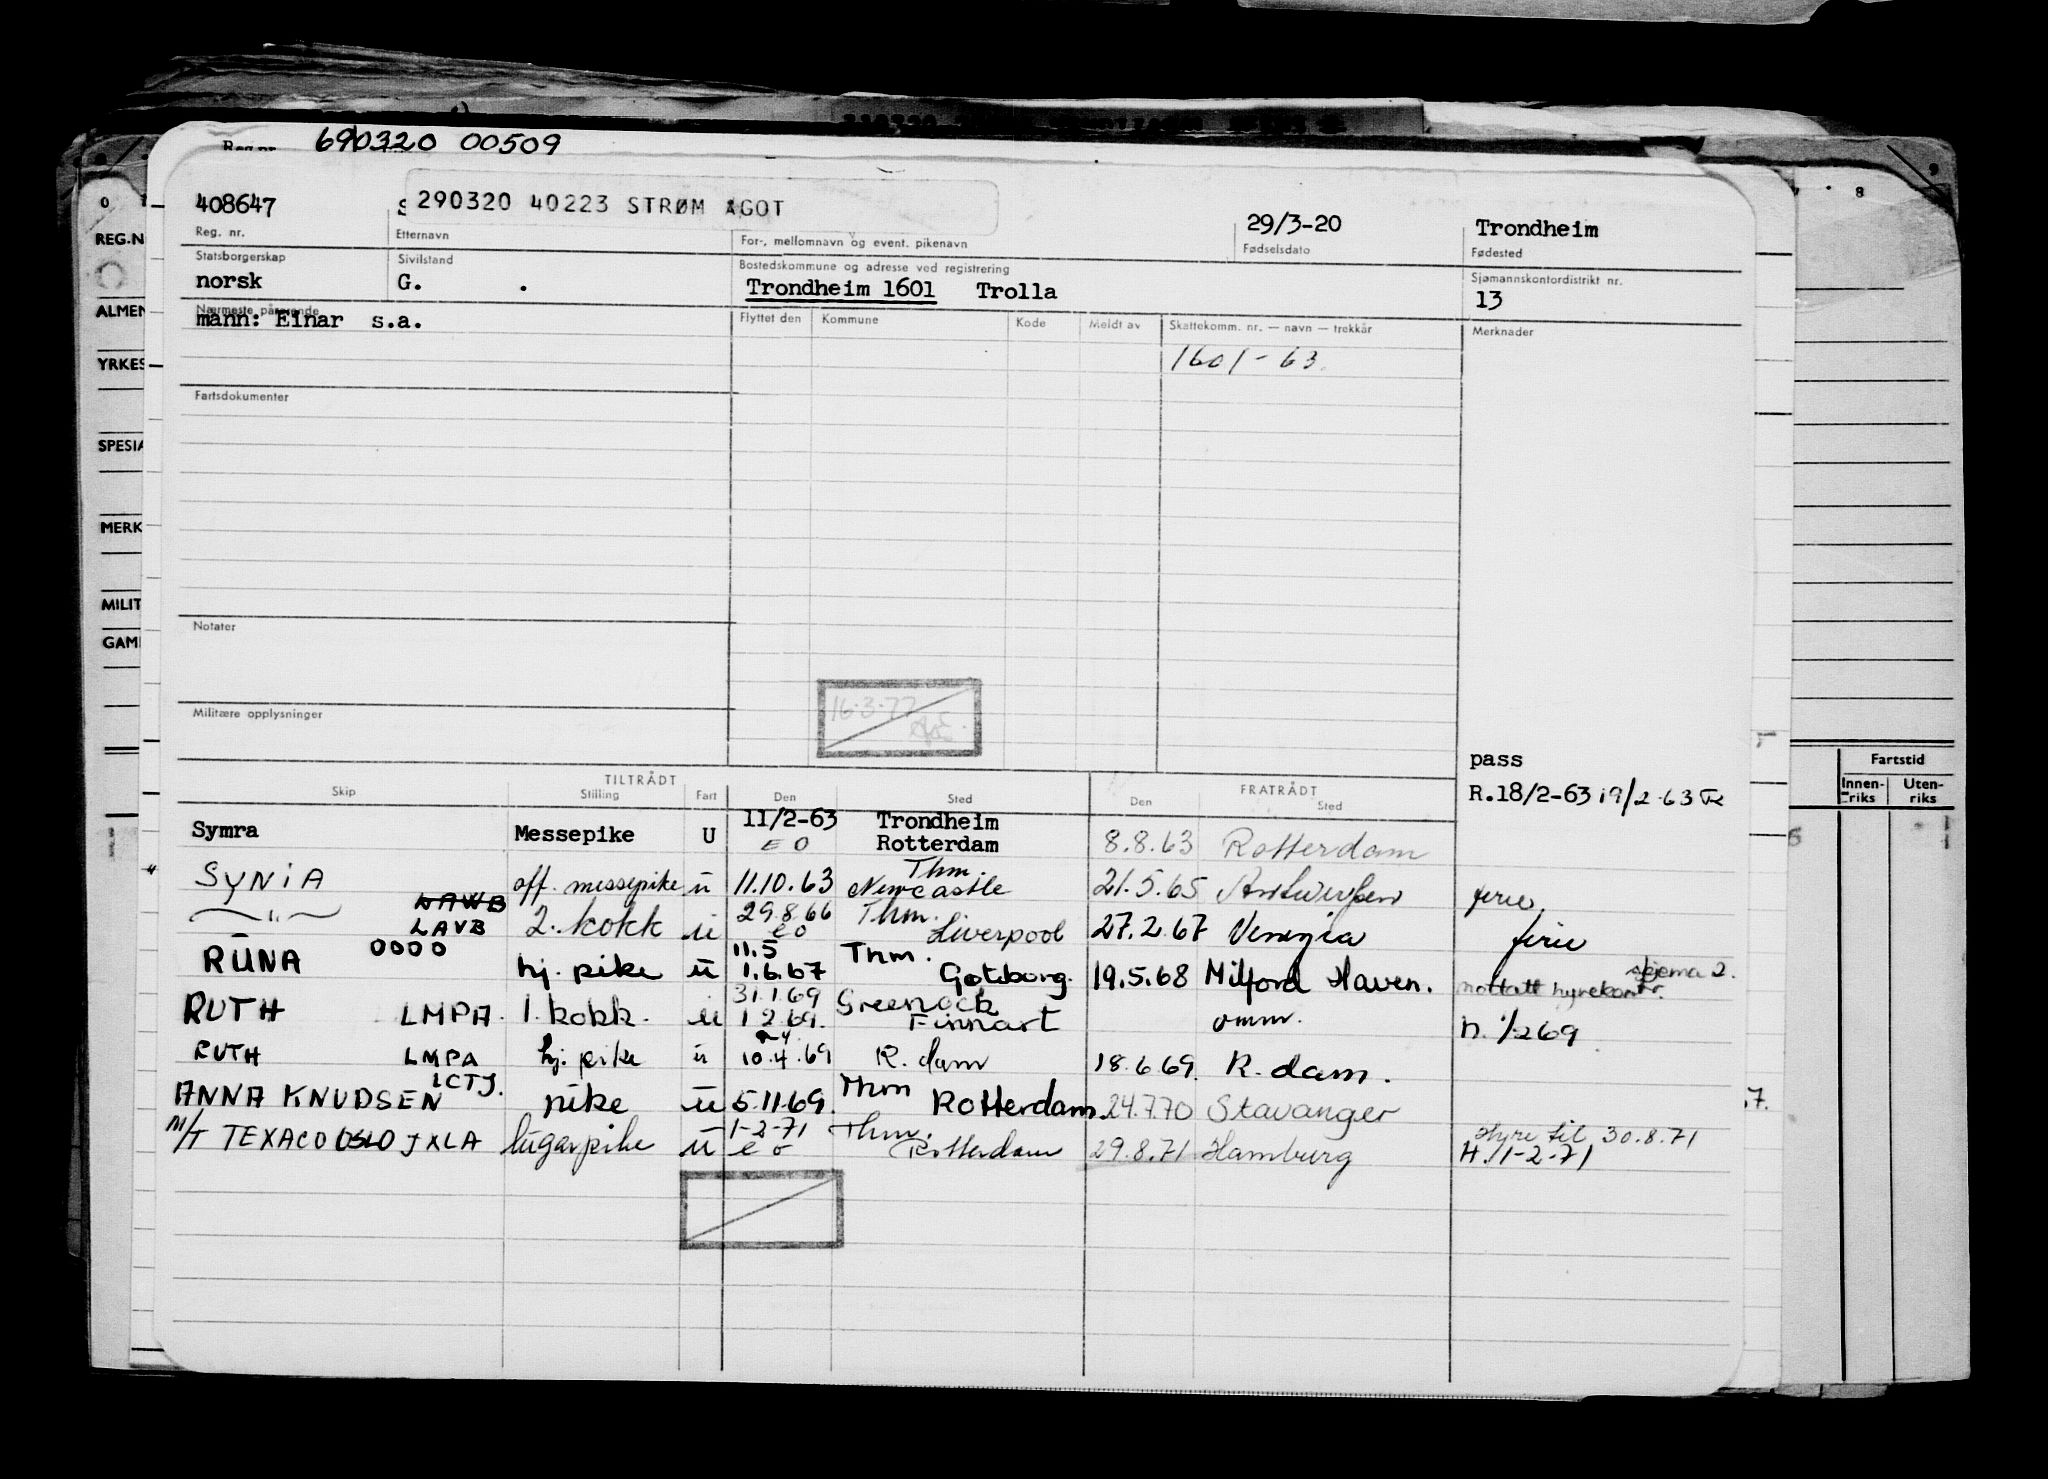 Reg.nr. 690320 00509
408647 290320 40223 STRØM ÅGOT 29/3-20 Trondheim
Reg. nr. Etternavn For-, mellomnavn og event. pikenavn Fødselsdato Fødested
Statsborgerskap Sivilstand Bostedskommune og adresse ved registrering Sjømannskontordistrikt nr.
norsk G. . Trondheim 1601 Trolla 13
Nærmeste pårørende Flyttet den Kommune Kode Meldt av Skattekomm. nr. — navn — trekkår Merknader
mann: Einar s.a.
1601-63.
Fartsdokumenter
Notater
16.3.77
Militære opplysninger
pass
R.18/2-63 19/2-63
TILTRÅDT FRATRÅDT
Skip Stilling Fart Den Sted Den Sted
Symra Messepike U 11/2-63 Trondheim
EO Rotterdam 8.8.63 Rotterdam
SYNIA off. messepike u 11.10.63 Thm. Newcastle 21.5.65 Antwerpen ferie.
—"— LAWB LAVB 2. kokk u 29.8.66 eo Thm. Liverpool 27.2.67 Venezia ferie
RUNA OOOO hj. pike u 11.5 1.6.67 Thm. Gøteborg. 19.5.68 Milford Haven. skjema 2.
mottatt hyrekontr.
RUTH LMPA. 1. kokk. u 31.1.69 1 2.69. Greenock Finnart omm. h. 1/2 69
RUTH LMPA hj. pike u 10.4.69 R. dam 18.6.69. R. dam.
ANNA KNUDSEN LCTJ. pike u 5.11.69. Thm Rotterdam. 24.7.70 Stavanger
M/T TEXACO OSLO JXLA lugarpike u 1-2-71 eo Thm. Rotterdam 29.8.71 Hamburg Hyre til 30.8.71
H. 1-2-71
REG.N
ALMEN
YRKES
SPESIA
MERK
MILIT
GAM
8
9
Fartstid
Innen-riks Uten-riks
7.